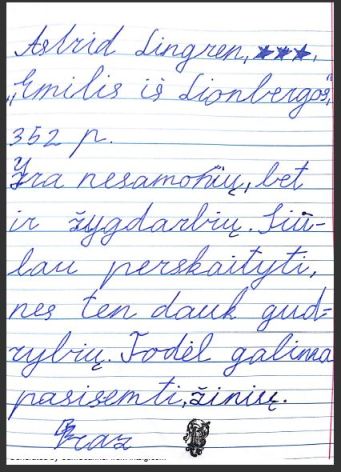 Astrid Lingren, ★★★,
„Emilis iš Lionbergos",
352 p.
Yra nesamonių, bet
ir žygdarbių. Siū-
lau perskaityti,
nes ten dauk gud-
rybių. Todėl galima
pasisemti, žinių.